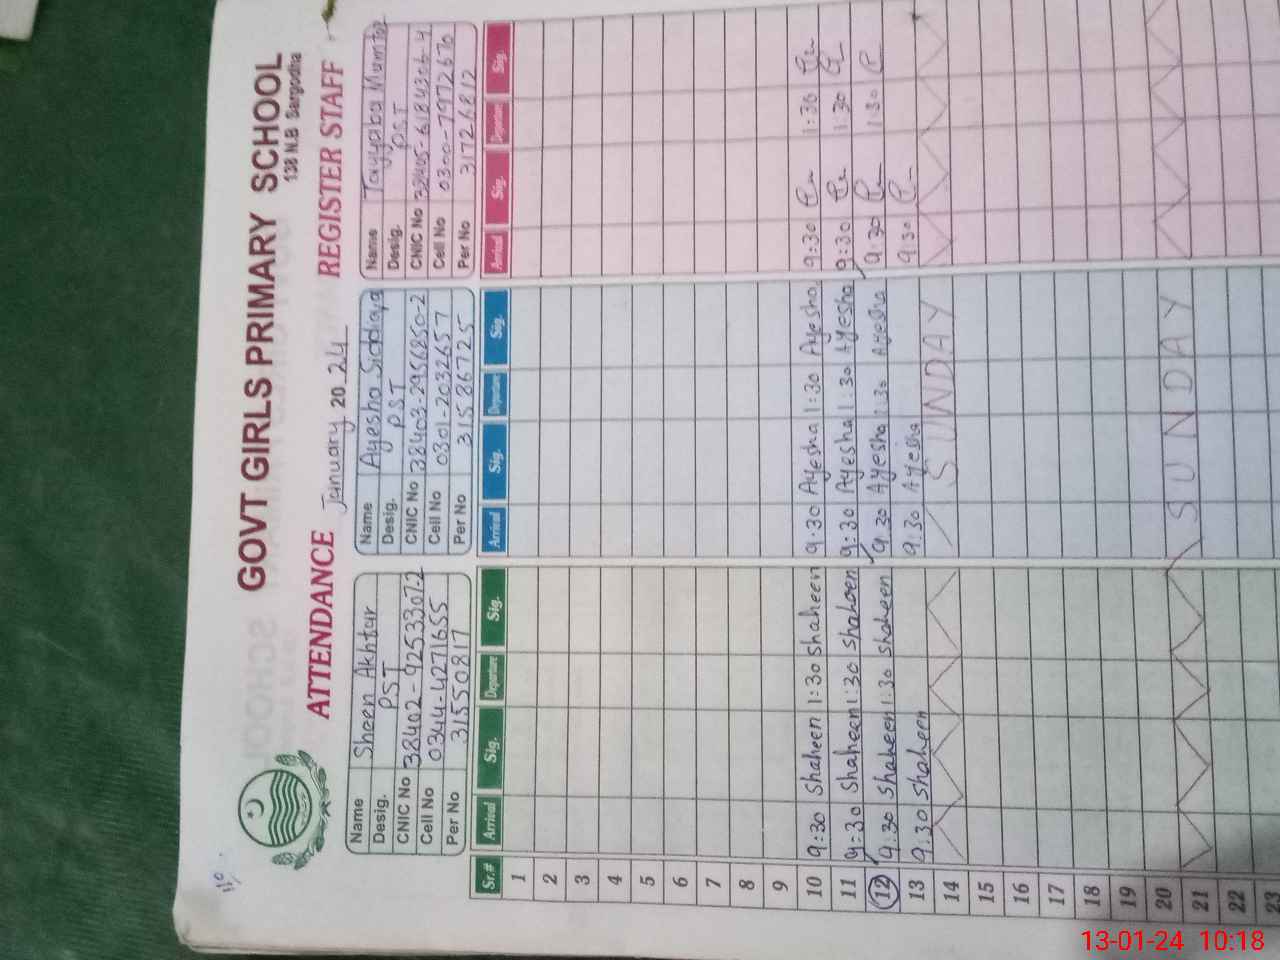 GOVT GIRLS PRIMARY SCHOOL
138 N.B Sargodha
ATTENDANCE January 2024 REGISTER STAFF
Name Sheen Akhtar Name Ayesha Siddiqa Name Tayyaba Mumtaz
Desig. PST Desig. PST Desig. PST
CNIC No 38402-9253307-2 CNIC No 38403-2956850-2 CNIC No 38405-6184306-4
Cell No 0344-4271655 Cell No 0301-2032657 Cell No 0300-7972670
Per No 31550817 Per No 31586725 Per No 31726812
Sr.# Arrival Sig. Departure Sig. Arrival Sig. Departure Sig. Arrival Sig. Departure Sig.
1
2
3
4
5
6
7
8
9
10 9:30 Shaheen 1:30 Shaheen 9:30 Ayesha 1:30 Ayesha 9:30 1:30
11 9:30 Shaheen 1:30 Shaheen 9:30 Ayesha 1:30 Ayesha 9:30 1:30
12 9:30 Shaheen 1:30 Shaheen 9:30 Ayesha 1:30 Ayesha 9:30 1:30
13 9:30 Shaheen 9:30 Ayesha 9:30
14 SUNDAY
15
16
17
18
19
20
21 SUNDAY
22
23
13-01-24 10:18